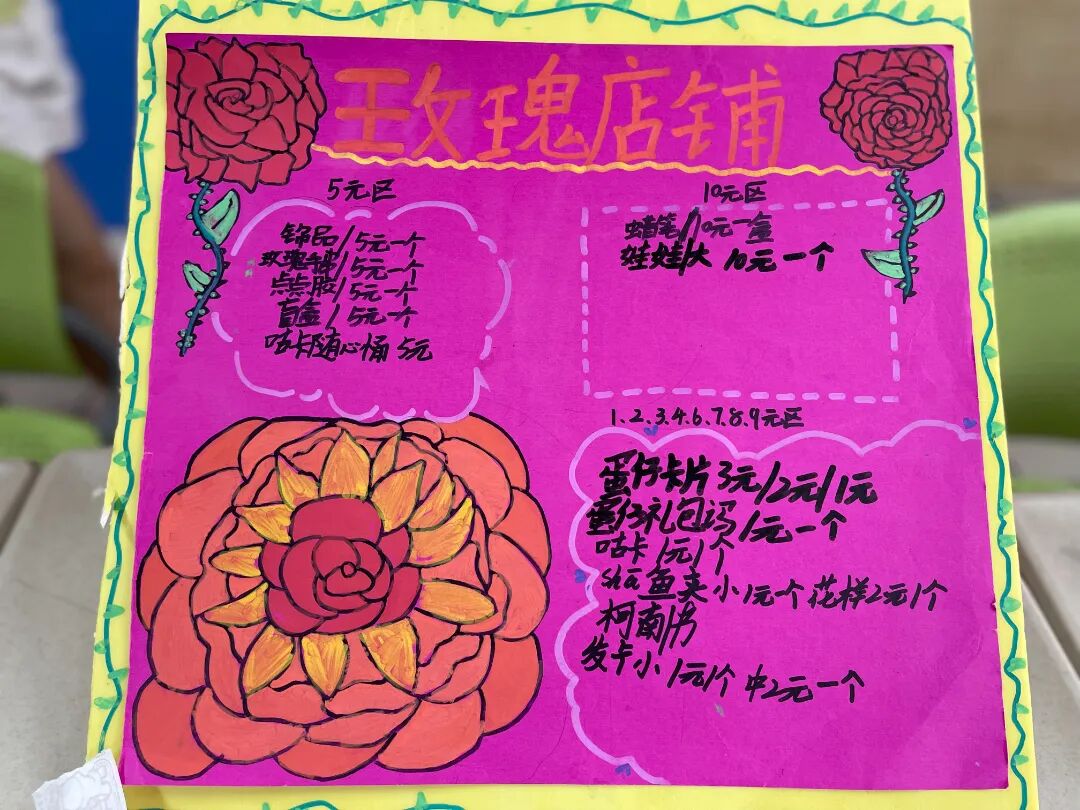 玫瑰店铺
5元区
饰品/5元一个
玫瑰手串/5元一个
点点胶/5元一个
盲盒/5元一个
咕卡随心桶 5元
10元区
蜡笔/10元一盒
娃娃/大 10元一个
1.2.3.4.6.7.8.9元区
蛋仔卡片3元/2元/1元
蛋仔礼包码1元一个
咕卡1元1个
sha鱼夹小1元一个花样2元1个
柯南/
发卡小1元1个 中2元一个